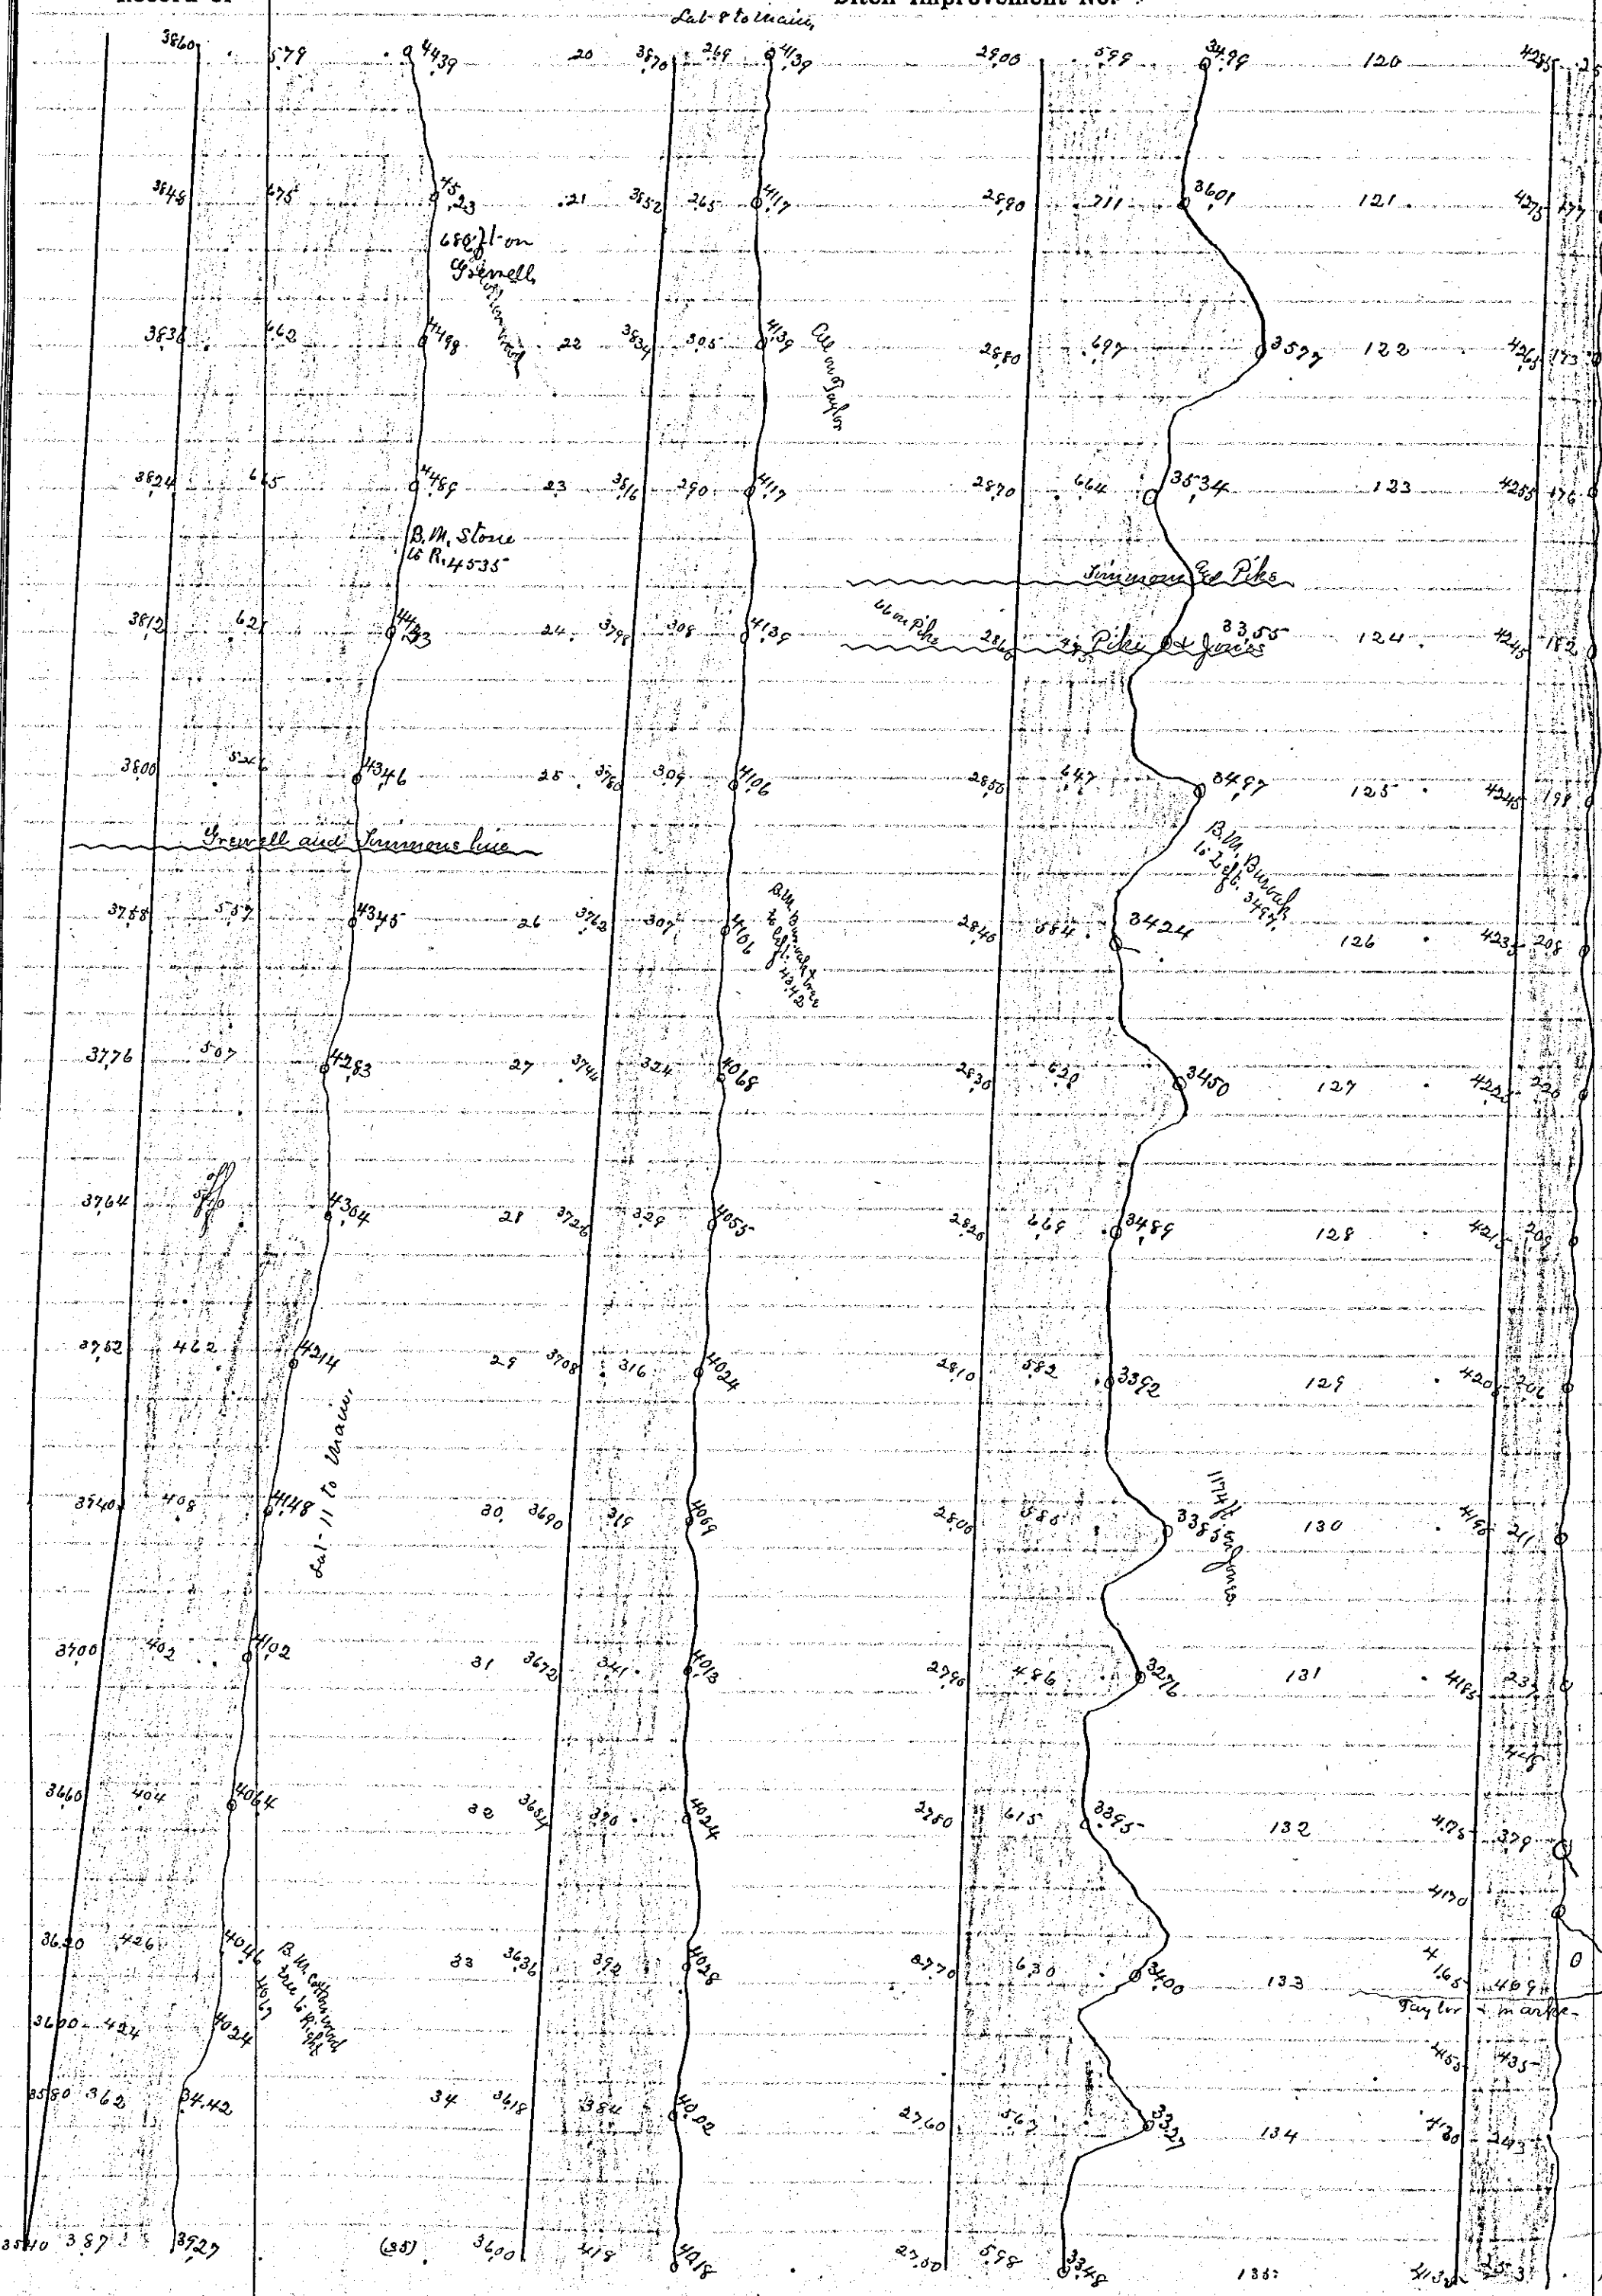 Record of
Ditch Improvement No.
Lat 8 to main
3860 579 4439 20 3870 269 4139 2900 599 3499 120 4285
3848 675 4523 21 3852 265 4117 2890 711 3601 121 4275 177
680 ft on
Grewell
3836 662 4498 22 3834 305 4139 2880 697 3577 122 4265 173
All on Taylor
3824 665 4489 23 3816 290 4117 2870 664 3534 123 4255 176
B.M. Stone
to R. 4535
Simmons & Pike
66 on Pike
3812 621 4433 24 3798 308 4139 2860 Pike & Jones 3355 124 4245 182
3800 546 4346 25 3780 309 4106 2850 647 3497 125 4245 198
Grewell and Simmons line
B.M. Buroak
to Left. 3497
3788 557 4345 26 3762 307 4106 2840 584 3424 126 4235 208
B.M. Buroak tree
to Left. 4342
3776 507 4283 27 3744 324 4068 2830 620 3450 127 4225 220
3764 4304 28 3726 329 4055 2820 669 3489 128 4215 209
3752 462 4214 29 3708 316 4024 2810 582 3392 129 4205 206
Lat-11 to Main
3740 408 4148 30 3690 319 4009 2800 585 3385 130 4195 211
1174 ft on Jones
3700 402 4102 31 3672 341 4013 2790 486 3276 131 4185 237
3660 404 4064 32 3654 370 4024 2780 615 3395 132 4175 379
4170
3620 426 4046 33 3636 392 4028 2770 630 3400 133 4165 409
B.M. Cottonwood
tree to Right
4067
Taylor &
3600 424 4024
4155 435
3580 362 34.42 34 3618 384 4002 2760 567 3327 134 4130 243
3540 387 3927 (35) 3600 418 4018 2750 598 3348 135